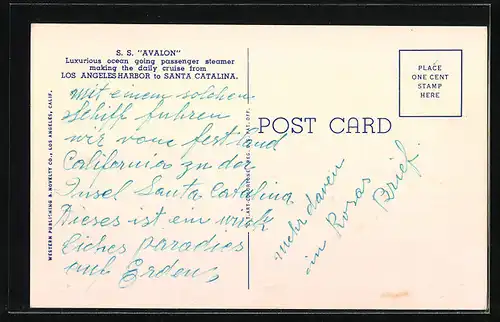 S. S. "AVALON"
Luxurious ocean going passenger steamer
making the daily cruise from
LOS ANGELES HARBOR to SANTA CATALINA.
Mit einem solchen
Schiff fuhren
wir vom festland
Californias zu der
Insel Santa Catalina
Dieses ist ein wirk
liches paradies
auf Erden.
WESTERN PUBLISHING & NOVELTY CO., LOS ANGELES, CALIF.
POST CARD
PLACE
ONE CENT
STAMP
HERE
mehr davon
in Rosas
Brief.